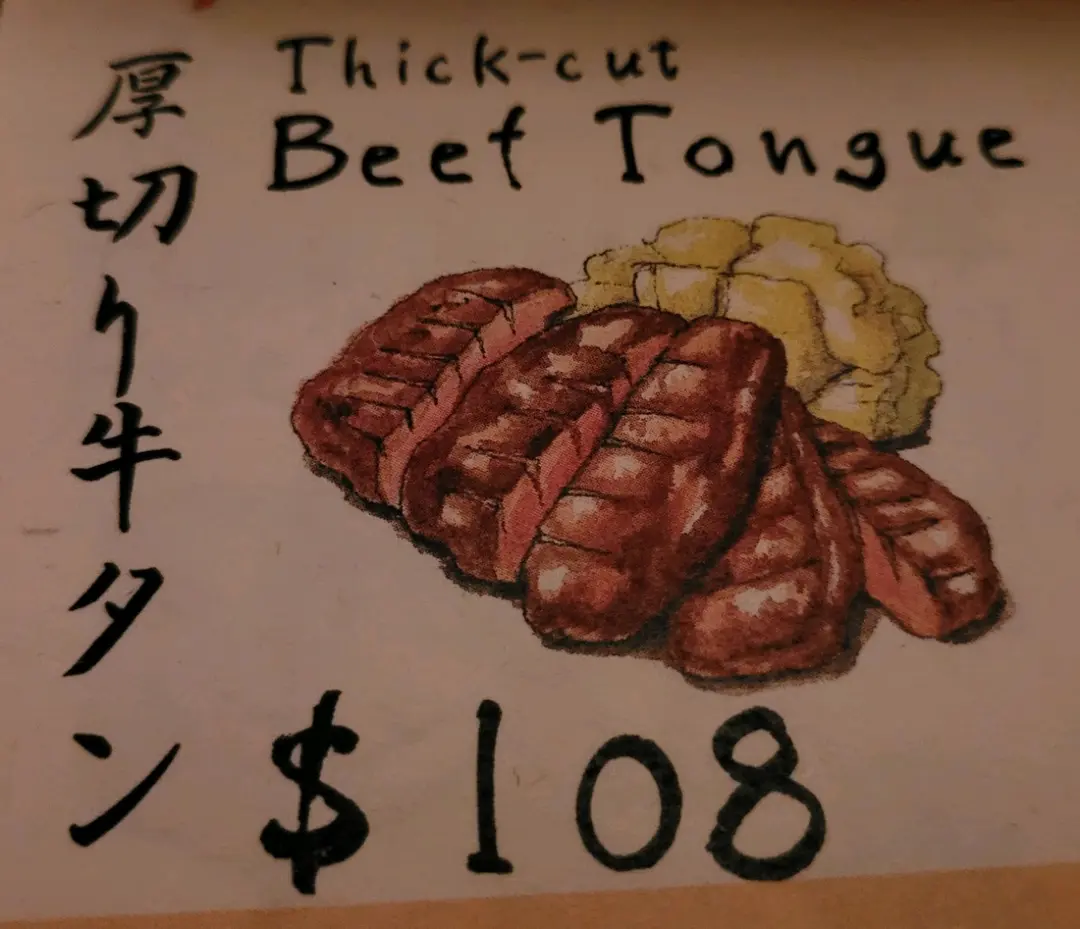 厚切り牛タン
Thick-cut
Beef Tongue
$108